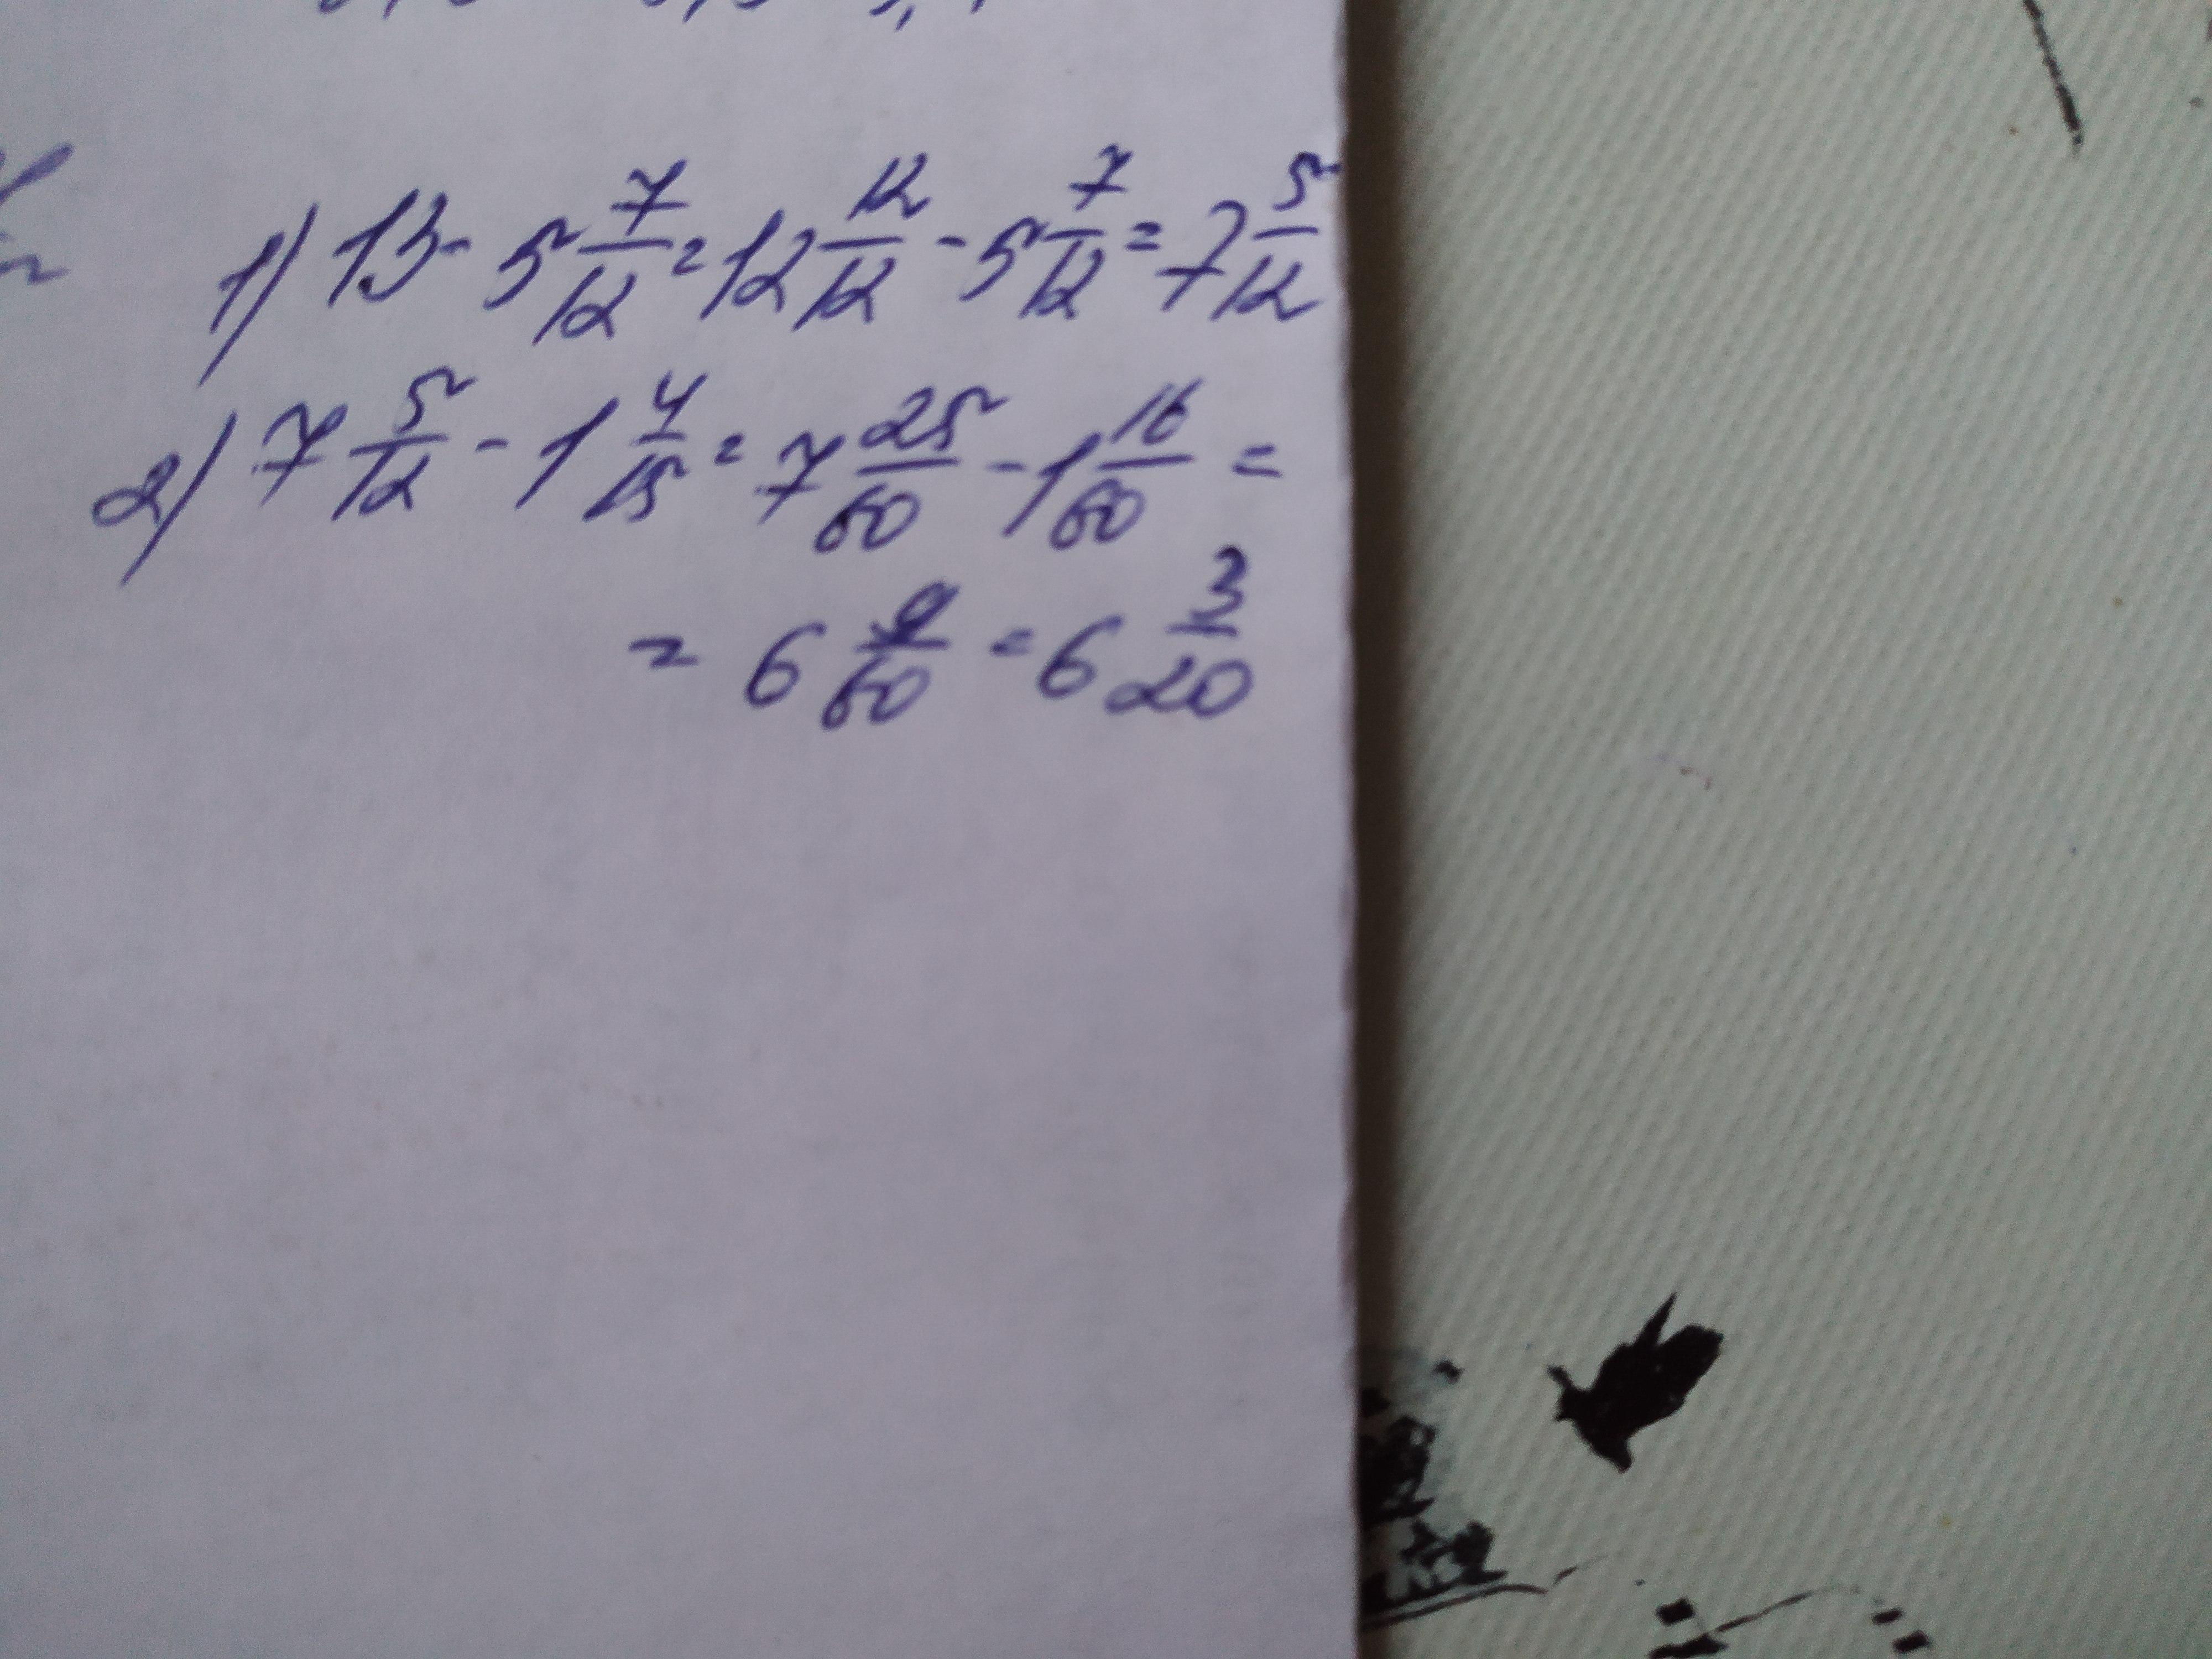 1) 13 - 5 7/12 = 12 12/12 - 5 7/12 = 7 5/12
2) 7 5/12 - 1 4/15 = 7 25/60 - 1 16/60 =
= 6 9/60 = 6 3/20